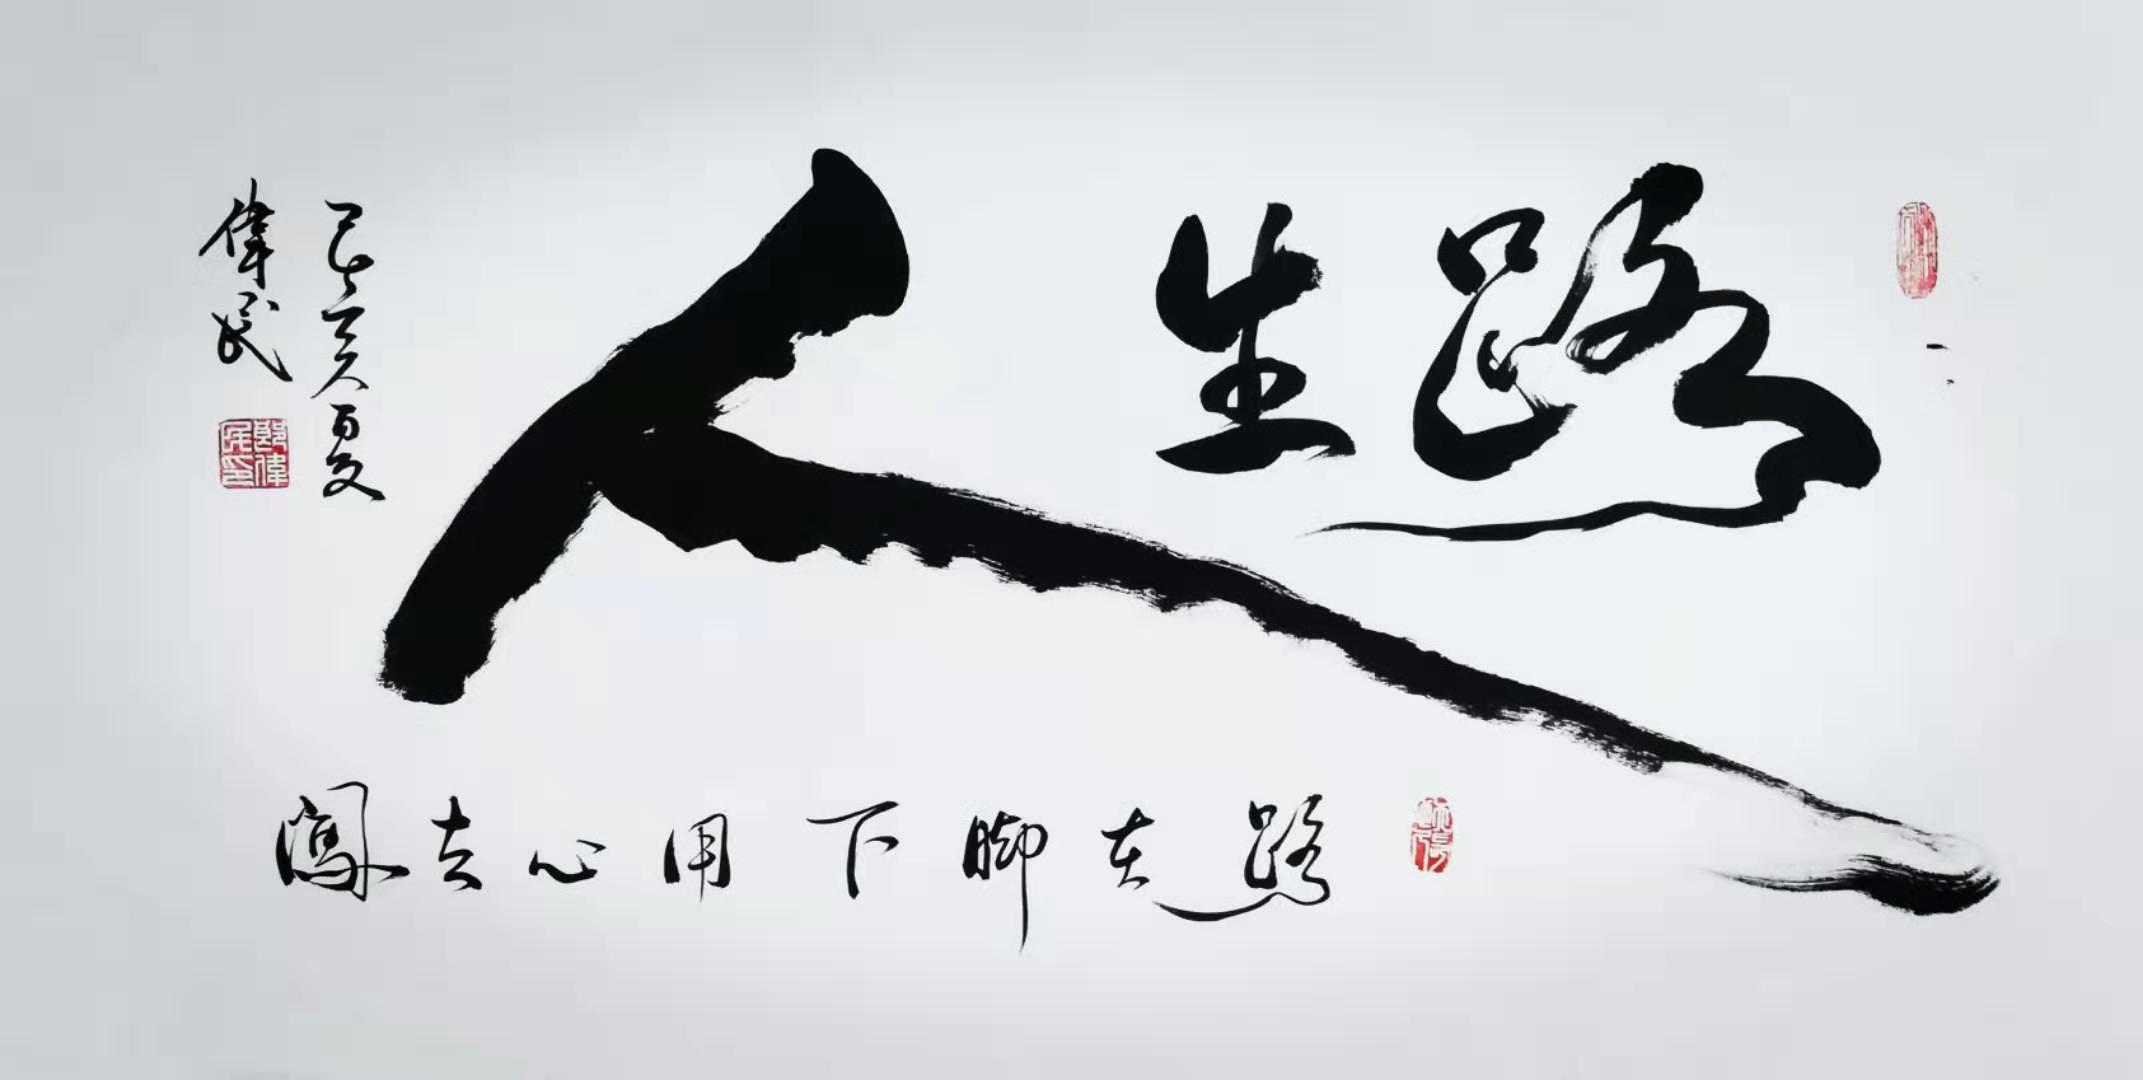 人生路
路在脚下用心去闖
己亥夏
偉民